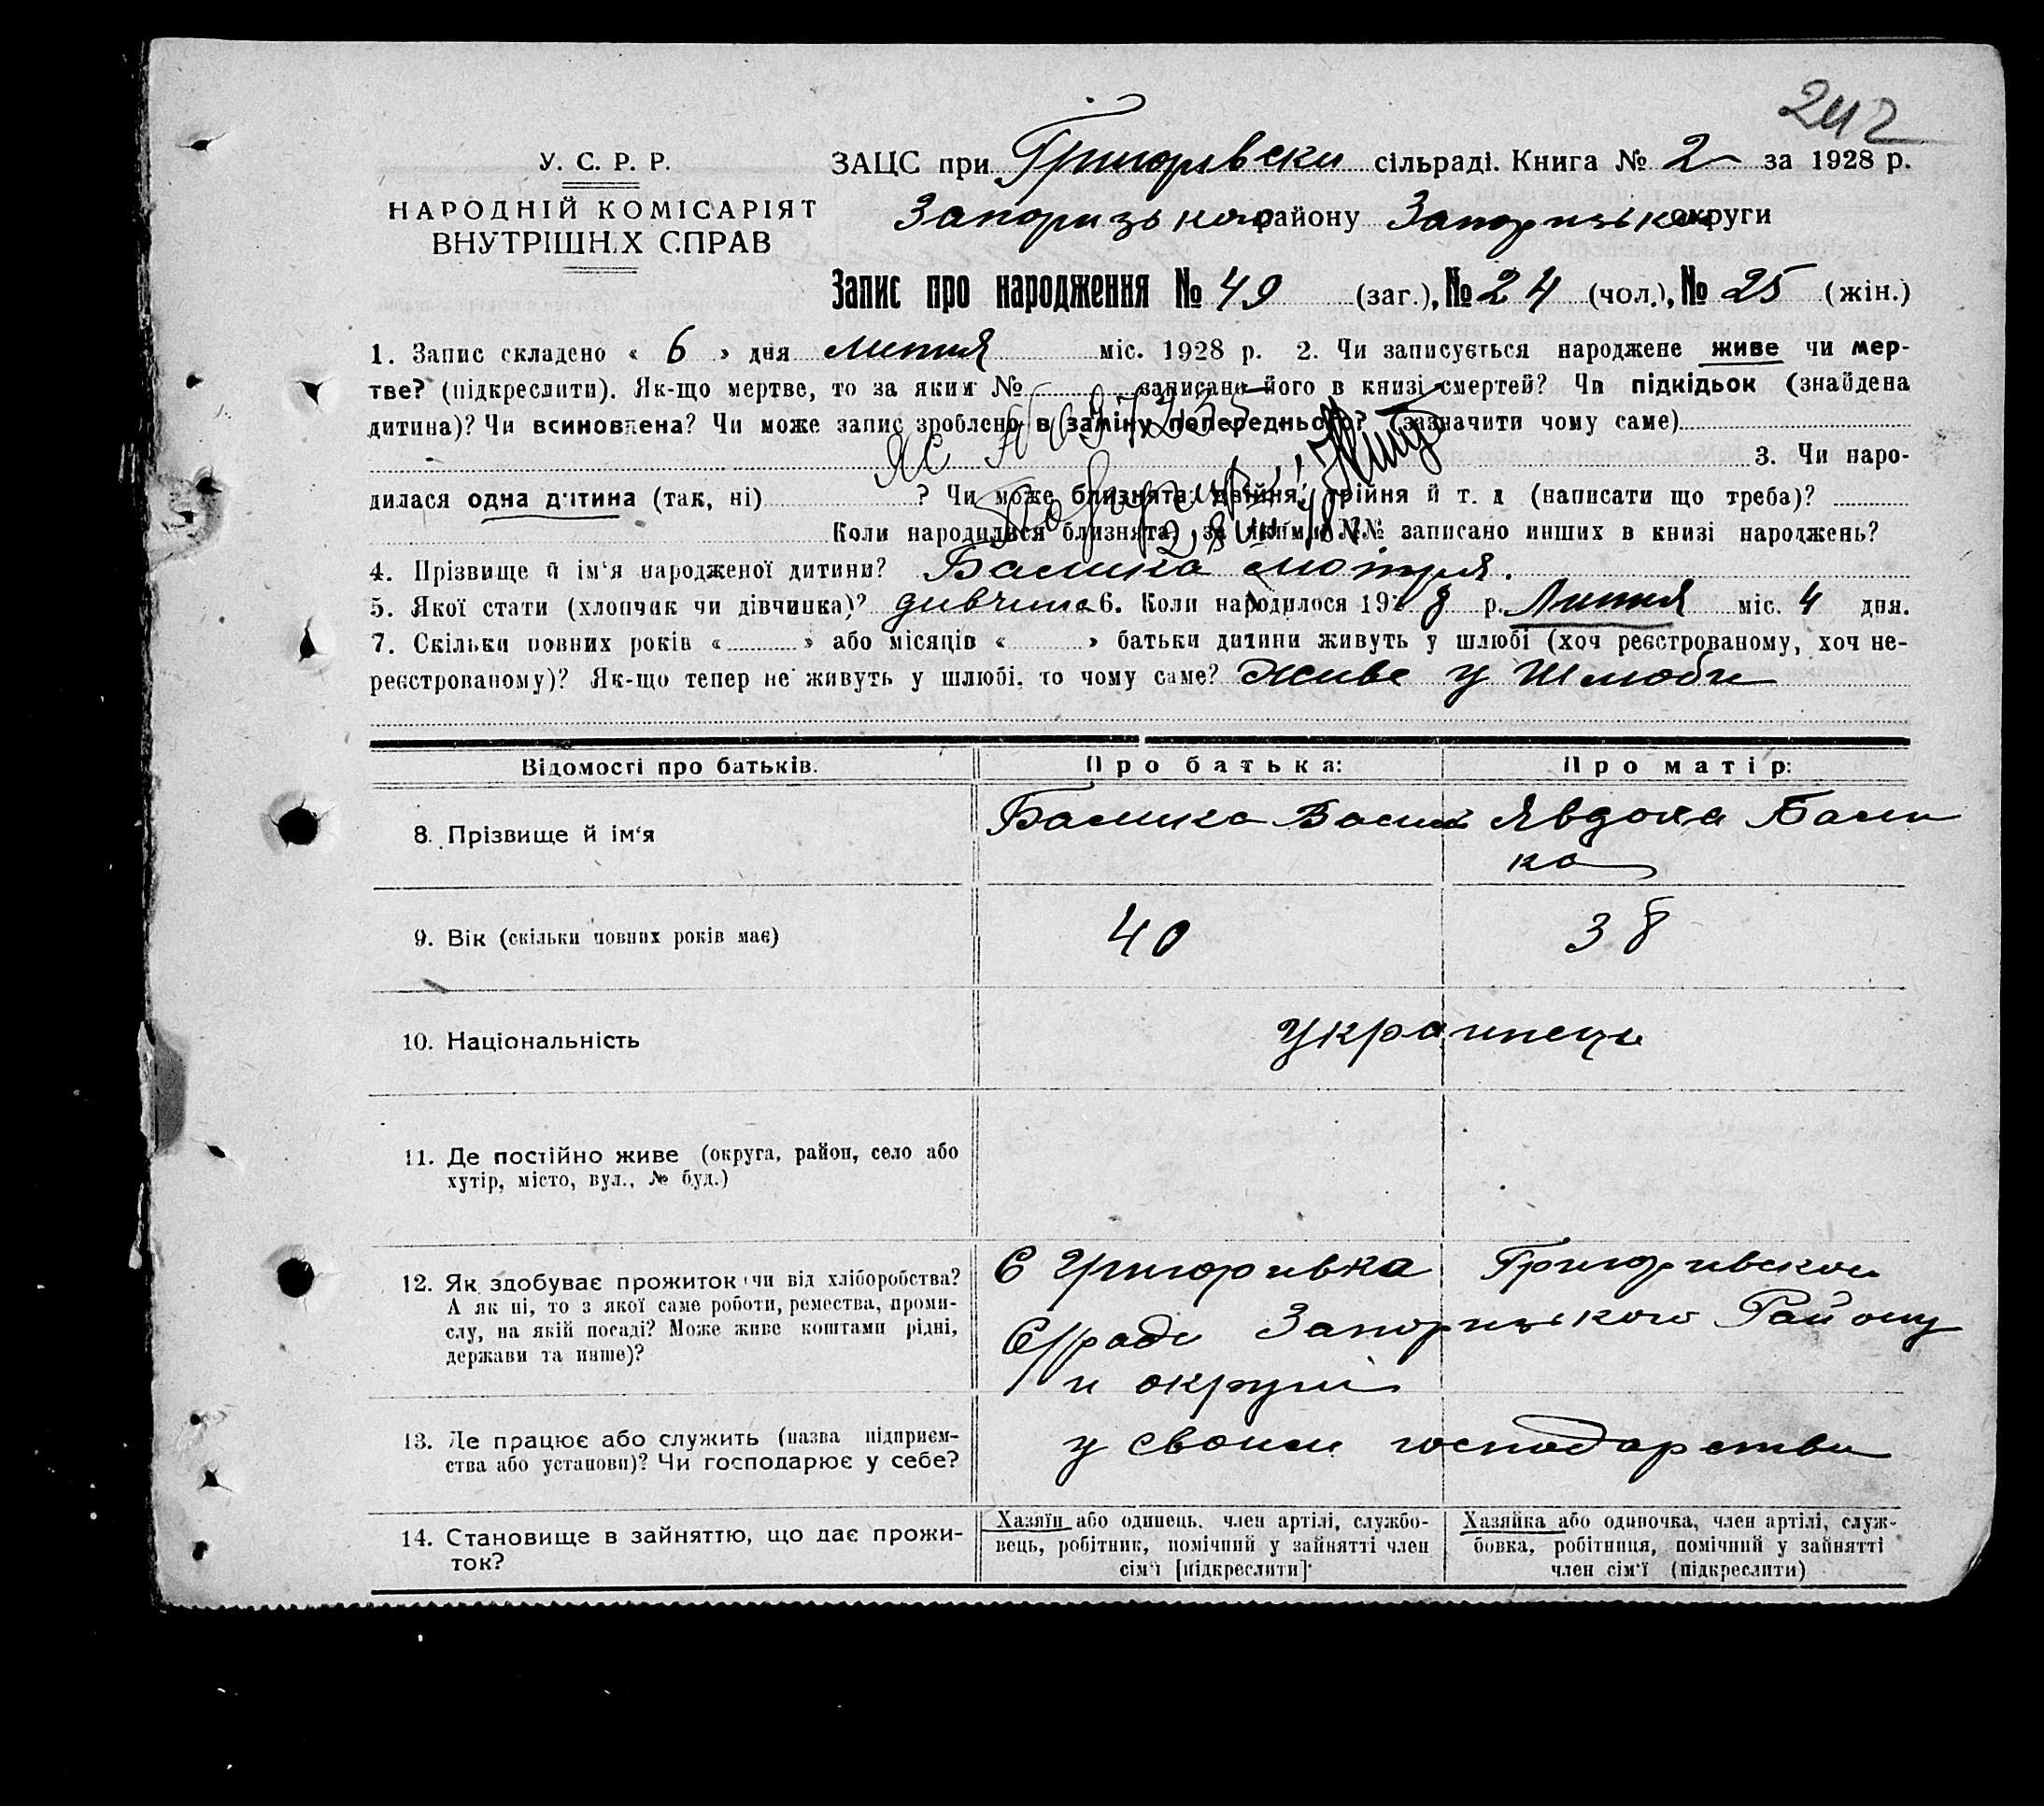 242
У. С. Р. Р.
НАРОДНІЙ КОМІСАРІЯТ
ВНУТРІШНІХ СПРАВ
ЗАЦС при Григоривски сільраді. Книга № 2 за 1928 р.
Запоризького району Запоризькои округи
Запис про народження № 49 (заг.), № 24 (чол.), № 25 (жін.)
1. Запис складено « 6 » дня липня міс. 1928 р. 2. Чи записується народжене живе чи мер-
тве? (підкреслити). Як-що мертве, то за яким № записано його в книзі смертей? Чи підкідьок (знайдена
дитина)? Чи всиновлена? Чи може запис зроблено в заміну попереднього? (зазначити чому саме)
3. Чи наро-
дилася одна дитина (так, ні) ? Чи може близнята: двійня, трійня й т. д (написати що треба)?
Коли народилися близнята, за якими №№ записано инших в книзі народжень?
4. Прізвище й ім'я народженої дитини? Балика Мотря.
5. Якої стати (хлопчик чи дівчинка)? дивчина 6. Коли народилося 1928 р. Липня міс. 4 дня.
7. Скільки повних років « » або місяців « » батьки дитини живуть у шлюбі (хоч реєстрованому, хоч не-
реєстрованому)? Як-що тепер не живуть у шлюбі, то чому саме? живе у шлюби
Відомості про батьків. Про батька: Про матір:
8. Прізвище й ім'я Балика Васил Явдоха Бали
ка
9. Вік (скільки повних років має) 40 38
10. Національність Украинець
11. Де постійно живе (округа, район, село або
хутір, місто, вул., № буд.)
12. Як здобуває прожиток (чи від хліборобства?
А як ні, то з якої саме роботи, ремества, проми-
слу, на якій посаді? Може живе коштами рідні,
держави та инше)?
С Григоривка Григоривскои
С/ради Запоризького Району
и округи
13. Де працює або служить (назва підприєм-
ства або установи)? Чи господарює у себе?
у своим господарстви
14. Становище в зайняттю, що дає прожи-
ток?
Хазяїн або одинець, член артілі, службо-
вець, робітник, помічний у зайнятті член
сім'ї [підкреслити]
Хазяйка або одиночка, член артілі, служ-
бовка, робітниця, помічний у зайнятті
член сім'ї (підкреслити)